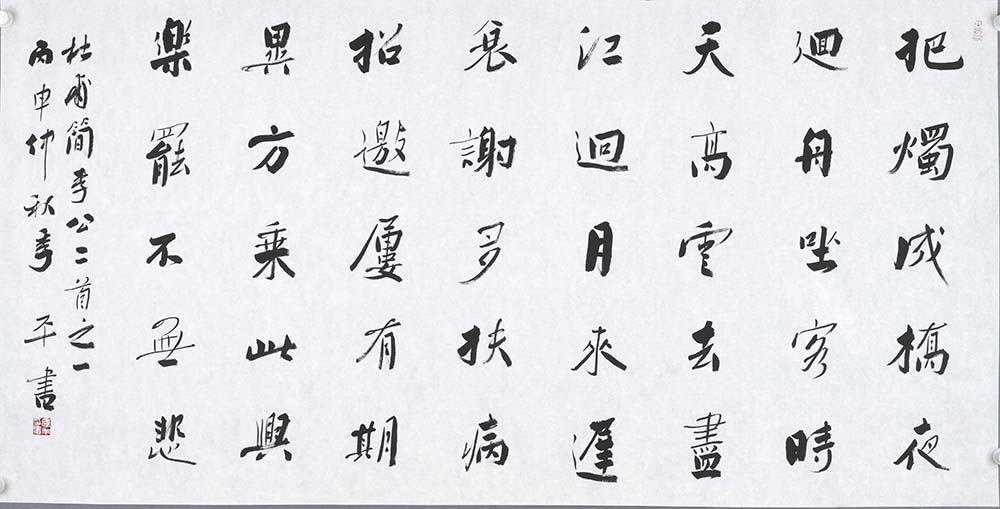 把燭成橋夜
迴舟坐客時
天高雲去盡
江迴月來遲
衰謝多扶病
招邀屢有期
異方乘此興
樂罷不無悲
杜甫簡李公二首之一
丙申仲秋李平書